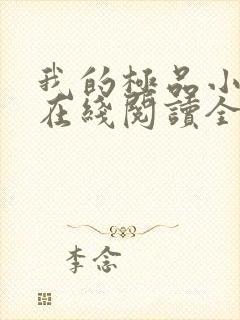 我的極品小
在綫閱讀全
李念